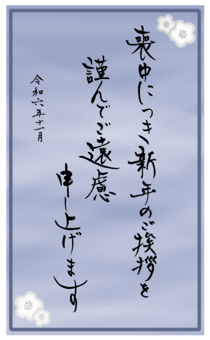 喪中につき新年のご挨拶を
謹んでご遠慮
申し上げます
令和六年十一月